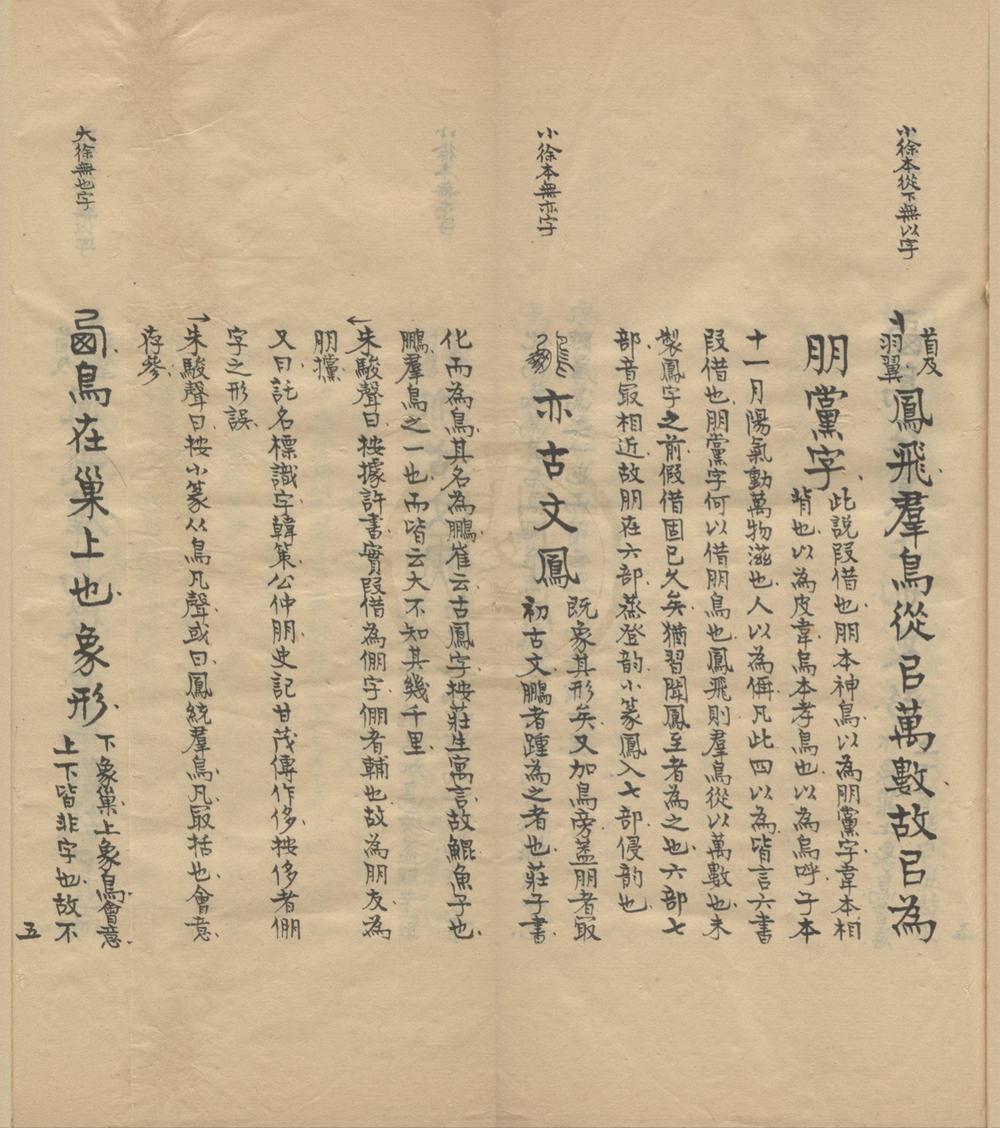 小徐本從下無以字
首及
羽翼
鳳飛羣鳥從㠯萬數故㠯為
朋黨字
此說叚借也朋本神鳥以為朋黨字韋本相
背也以為皮韋烏本孝鳥也以為烏呼子本
十一月陽氣動萬物滋也人以為偁凡此四以為皆言六書
叚借也朋黨字何以借朋鳥也鳳飛則羣鳥從以萬數也未
製鳳字之前假借固已久矣猶習聞鳳至者為之也六部七
部音最相近故朋在六部蒸登韵小篆鳳入七部侵韵也
小徐本無亦字
亦古文鳳
既象其形矣又加鳥旁葢朋者最
初古文鵬者踵為之者也莊子書
化而為鳥其名為鵬崔云古鳳字按莊生寓言故鯤魚子也
鵬羣鳥之一也而皆云大不知其幾千里
朱駿聲曰按據許書實叚借為倗字倗者輔也故為朋友為
朋攩
又曰託名標識字韓策公仲朋史記甘茂傳作侈按侈者倗
字之形誤
朱駿聲曰按小篆从鳥凡聲或曰鳳統羣鳥凡最括也會意
存參
大徐無也字
鳥在巢上也象形
下象巢上象鳥會意
上下皆非字也故不
五